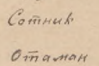 Сотник
Отаман